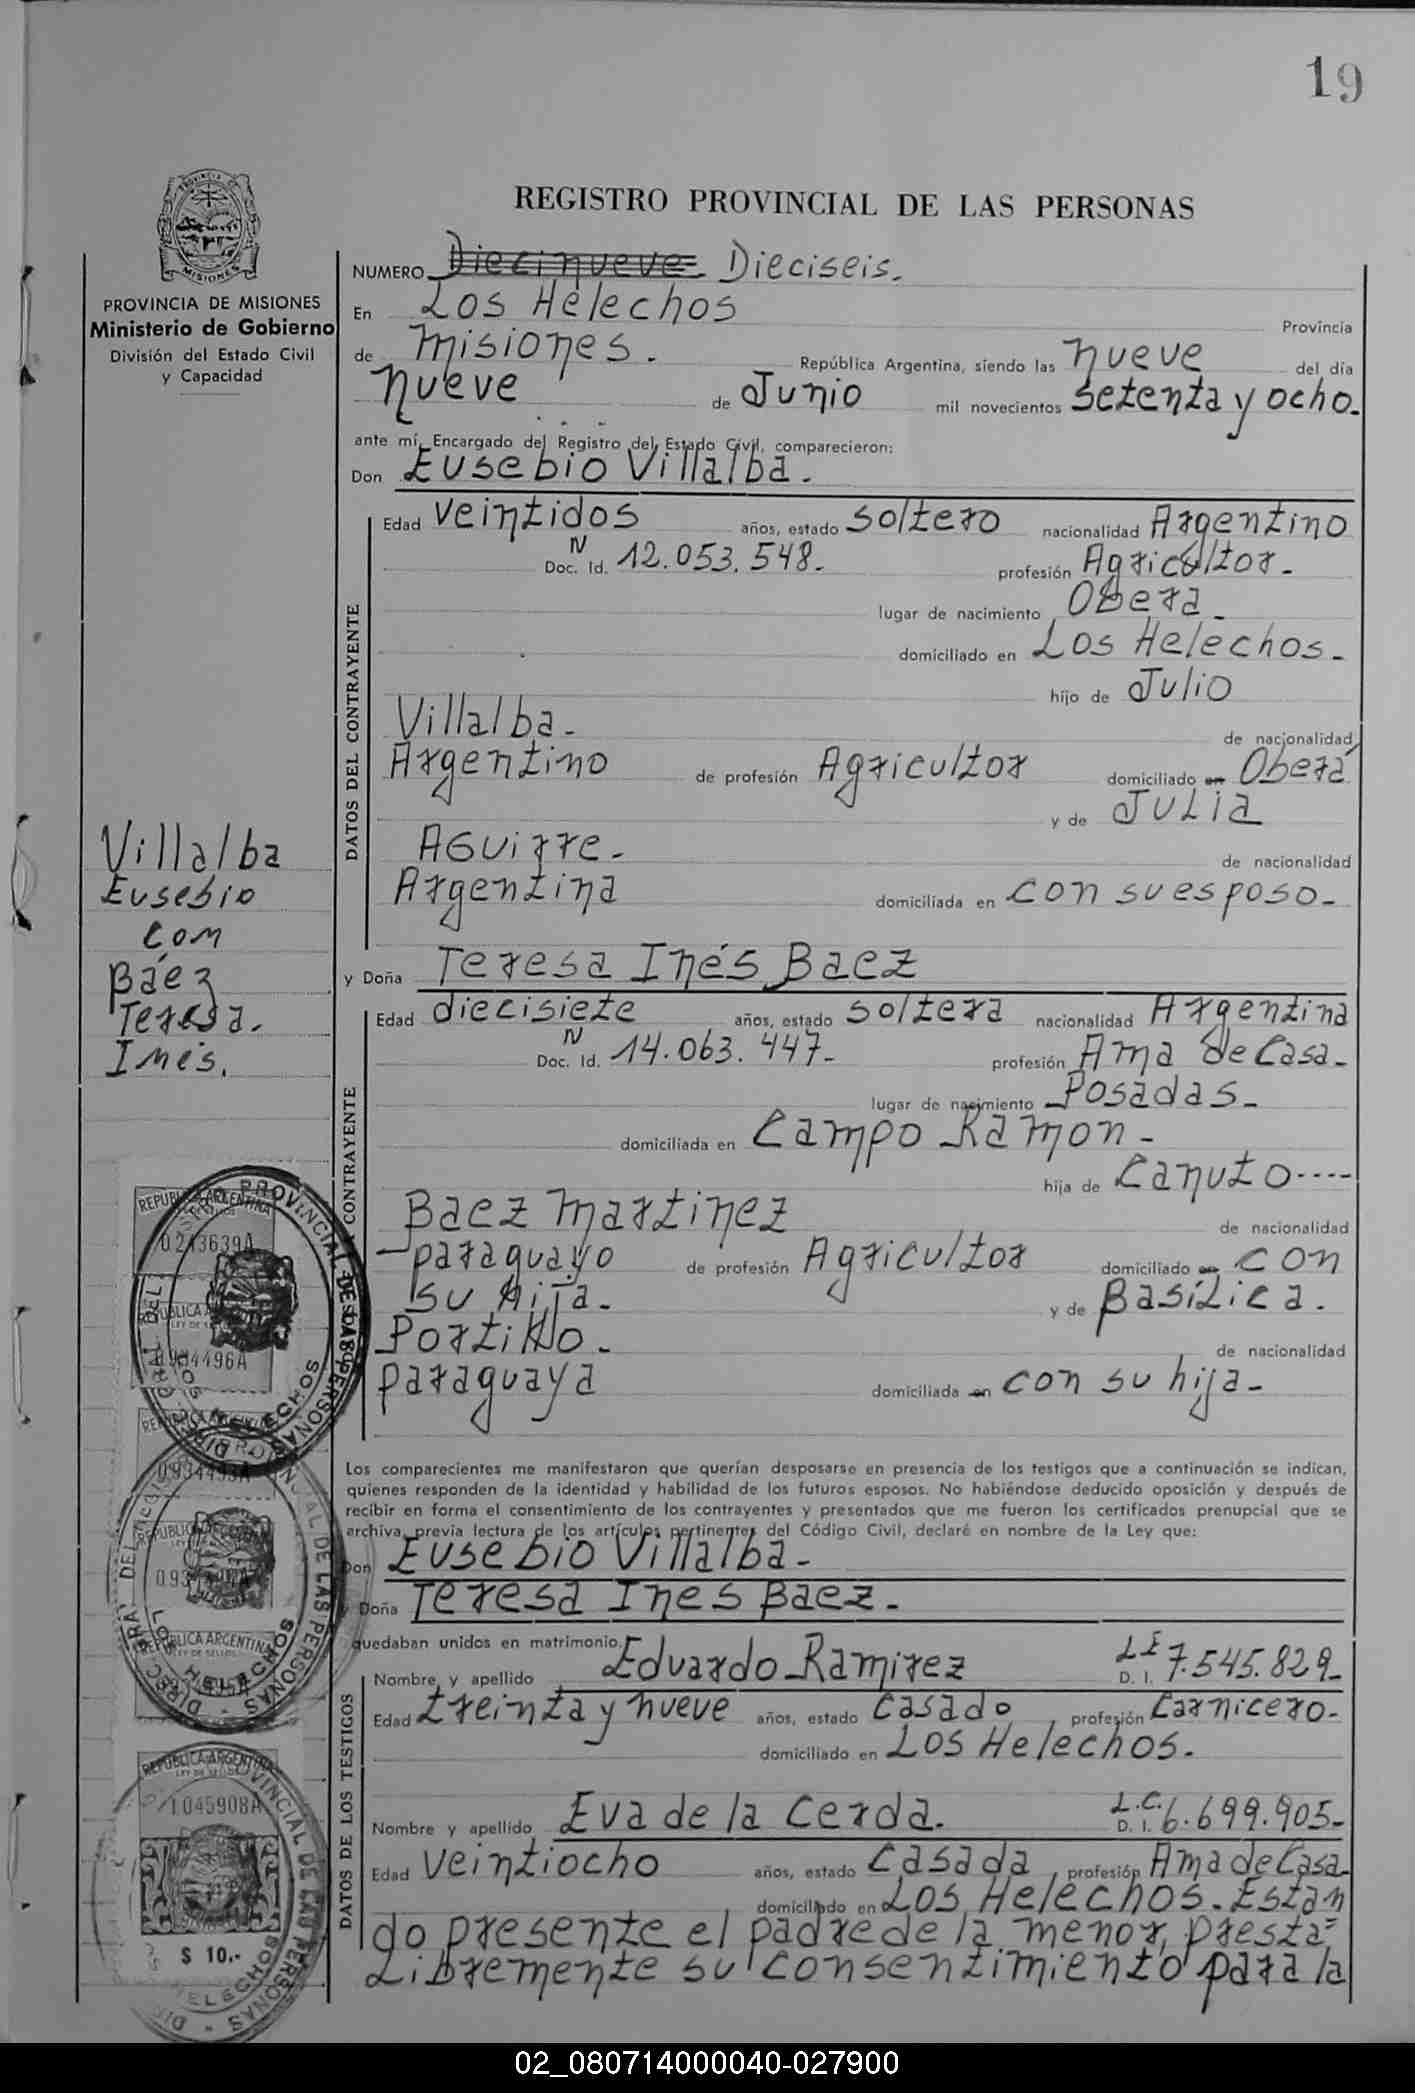 19
PROVINCIA DE MISIONES
Ministerio de Gobierno
División del Estado Civil
y Capacidad
REGISTRO PROVINCIAL DE LAS PERSONAS
NUMERO Diecinueve Dieciseis.
En Los Helechos Provincia
de Misiones. República Argentina, siendo las nueve del día
nueve de Junio mil novecientos setenta y ocho.
ante mí, Encargado del Registro del Estado Civil, comparecieron:
Don Eusebio Villalba.
DATOS DEL CONTRAYENTE
Edad veintidos años, estado soltero nacionalidad Argentino
N
Doc. Id. 12.053.548. profesión Agricultor.
lugar de nacimiento Obera.
domiciliado en Los Helechos.
hijo de Julio
Villalba. de nacionalidad
Argentino de profesión Agricultor domiciliado en Oberá
y de Julia
Aguirre. de nacionalidad
Argentina domiciliada en con su esposo.
Villalba
Eusebio
con
Báez
Teresa.
Inés.
y Doña Teresa Inés Baez
CONTRAYENTE
Edad diecisiete años, estado soltera nacionalidad Argentina
N
Doc. Id. 14.063.447. profesión Ama de Casa.
lugar de nacimiento Posadas.
domiciliada en Campo Ramon.
hija de Canuto ----
Baez Martinez de nacionalidad
paraguayo de profesión Agricultor domiciliado en con
su hija. y de Basílica.
Portillo. de nacionalidad
paraguaya domiciliada en con su hija.
Los comparecientes me manifestaron que querían desposarse en presencia de los testigos que a continuación se indican,
quienes responden de la identidad y habilidad de los futuros esposos. No habiéndose deducido oposición y después de
recibir en forma el consentimiento de los contrayentes y presentados que me fueron los certificados prenupcial que se
archiva, previa lectura de los artículos pertinentes del Código Civil, declaré en nombre de la Ley que:
Don Eusebio Villalba.
Doña Teresa Ines Baez.
quedaban unidos en matrimonio.
DATOS DE LOS TESTIGOS
Nombre y apellido Eduardo Ramirez L E D. I. 7.545.829.
Edad treinta y nueve años, estado casado profesión Carnicero.
domiciliado en Los Helechos.
Nombre y apellido Eva de la Cerda. L.C. D. I. 6.699.905.
Edad veintiocho años, estado casada, profesión Ama de Casa.
domiciliado en Los Helechos. Estan
do presente el padre de la menor, presta=
Libremente su consentimiento para la
REPUBLICA ARGENTINA
0243639A
REPUBLICA ARGENTINA
LEY DE SELLOS
1045908A
$ 10.-
02_080714000040-027900